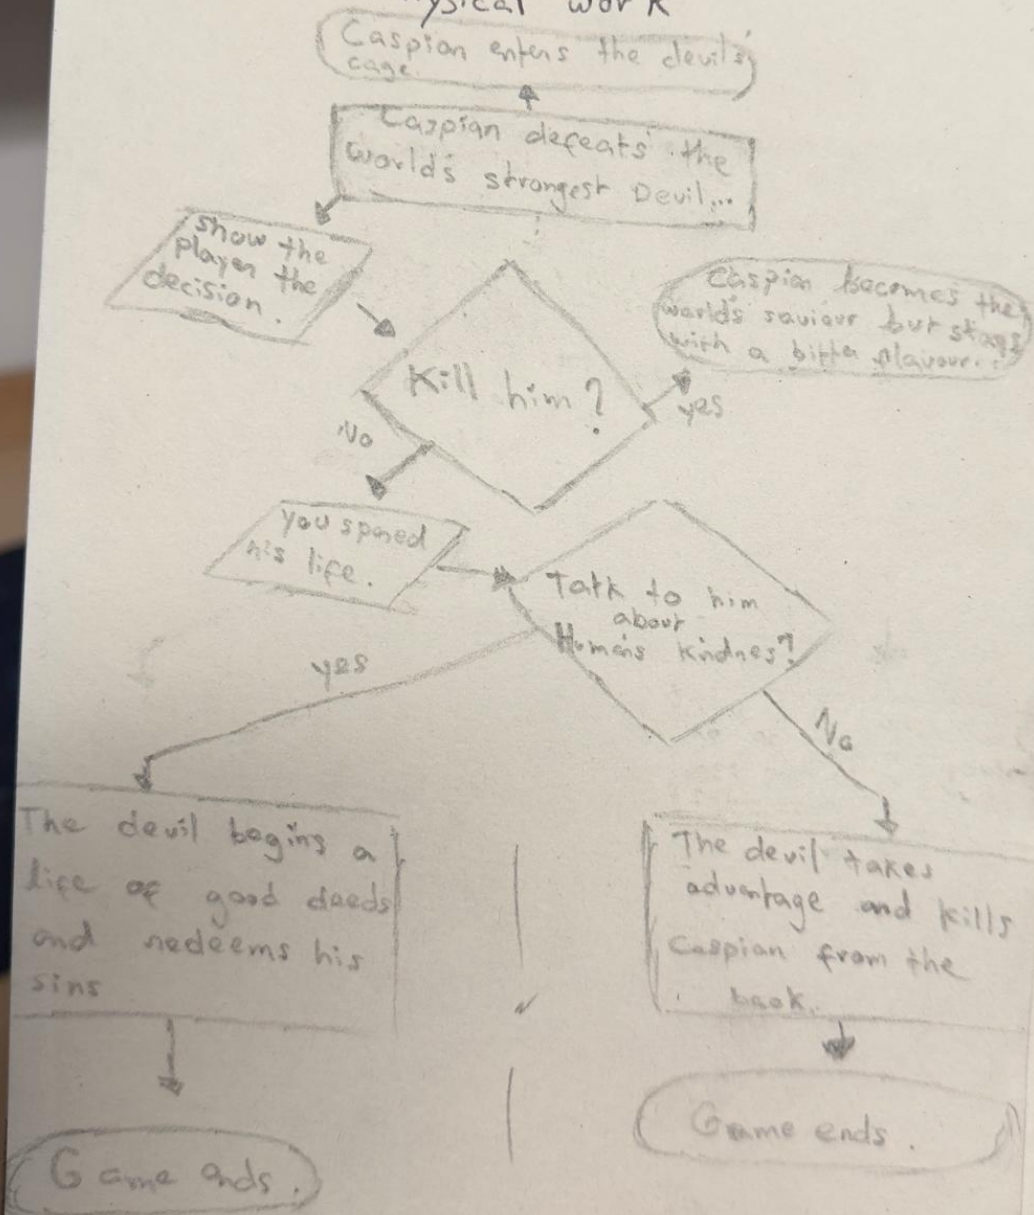 ysical work
Caspian enters the devil's
cage.
Caspian defeats the
world's strongest Devil...
show the
player the
decision.
Caspian becomes the
world's saviour but stays
with a bitter flavour.
Kill him?
yes
No
You spared
his life.
Talk to him
about
Human's kindnes?
yes
No
The devil begins a
life of good deeds
and redeems his
sins
The devil takes
advantage and kills
Caspian from the
back.
Game ends.
Game ends.